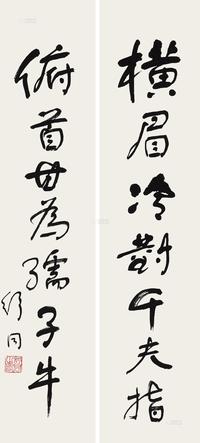 橫眉冷對千夫指
俯首甘為孺子牛
舒同